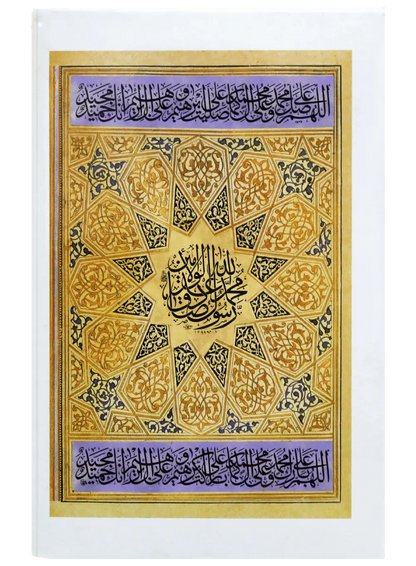 اللهم صل على محمد وعلى آل محمد كما صليت على ابراهيم وعلى آل ابراهيم انك حميد مجيد
محمد رسول الله صادق الوعد الامين
اللهم بارك على محمد وعلى آل محمد كما باركت على ابراهيم وعلى آل ابراهيم انك حميد مجيد